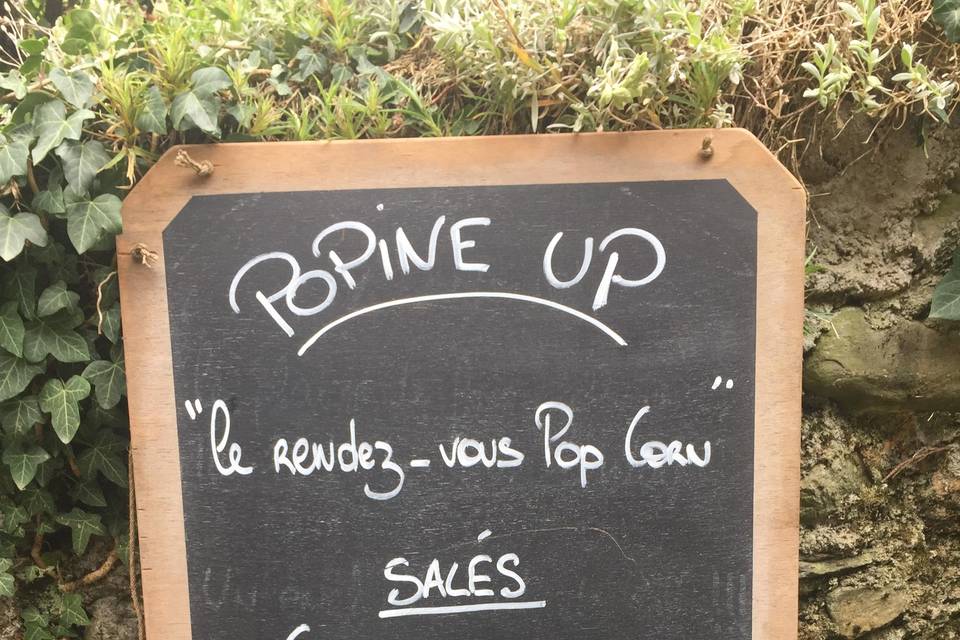 POPINE UP
"le rendez-vous Pop Corn"
SALÉS